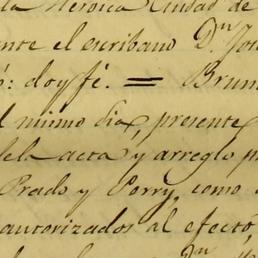 la Heroica Ciudad de
ante el escribano Dn. Jos
ó: doy fé. = Brun
l mismo dia, presente
dela acta y arreglo p
Prado y Porry, como
autorizados al efectó,